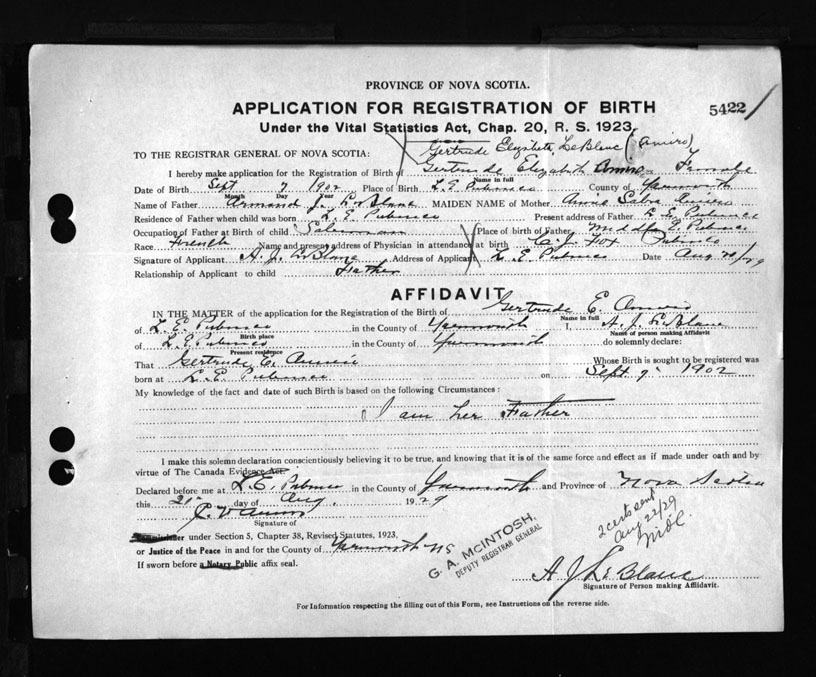 PROVINCE OF NOVA SCOTIA.
APPLICATION FOR REGISTRATION OF BIRTH
5422
Under the Vital Statistics Act, Chap. 20, R. S. 1923.
Gertrude Elizabeth LeBlanc (Amiro)
TO THE REGISTRAR GENERAL OF NOVA SCOTIA:
I hereby make application for the Registration of Birth of Gertrude Elizabeth Amiro Female
Name in full
Date of Birth Sept 7 1902 Place of Birth L. E. Pubnico County of Yarmouth
Month Day Year
Name of Father Armand J. LeBlanc MAIDEN NAME of Mother Annie
Residence of Father when child was born L. E. Pubnico Present address of Father L. E. Pubnico
Occupation of Father at Birth of child Place of birth of Father Middle E. Pubnico
Race French Name and present address of Physician in attendance at birth C. J. Fox Pubnico
Signature of Applicant A. J. LeBlanc Address of Applicant L. E. Pubnico Date Aug /29
Relationship of Applicant to child Father
AFFIDAVIT
IN THE MATTER of the application for the Registration of the Birth of Gertrude E. Amiro
Name in full
of L. E. Pubnico in the County of Yarmouth I, A. J. LeBlanc
Birth place Name of person making Affidavit
of L. E. Pubnico in the County of Yarmouth do solemnly declare:
Present residence
That Gertrude E. Amiro Whose Birth is sought to be registered was
born at L. E. Pubnico on Sept 7 1902
My knowledge of the fact and date of such Birth is based on the following Circumstances:
I am her Father
I make this solemn declaration conscientiously believing it to be true, and knowing that it is of the same force and effect as if made under oath and by
virtue of The Canada Evidence Act.
Declared before me at L. E. Pubnico in the County of Yarmouth and Province of Nova Scotia
this 21 day of Aug. 1929
Signature of
2 certs sent
Aug 22/29
Commissioner under Section 5, Chapter 38, Revised Statutes, 1923.
or Justice of the Peace in and for the County of Yarmouth NS
G. A. McINTOSH,
DEPUTY REGISTRAR GENERAL
If sworn before a Notary Public affix seal.
A J LeBlanc
Signature of Person making Affidavit.
For Information respecting the filling out of this Form, see Instructions on the reverse side.